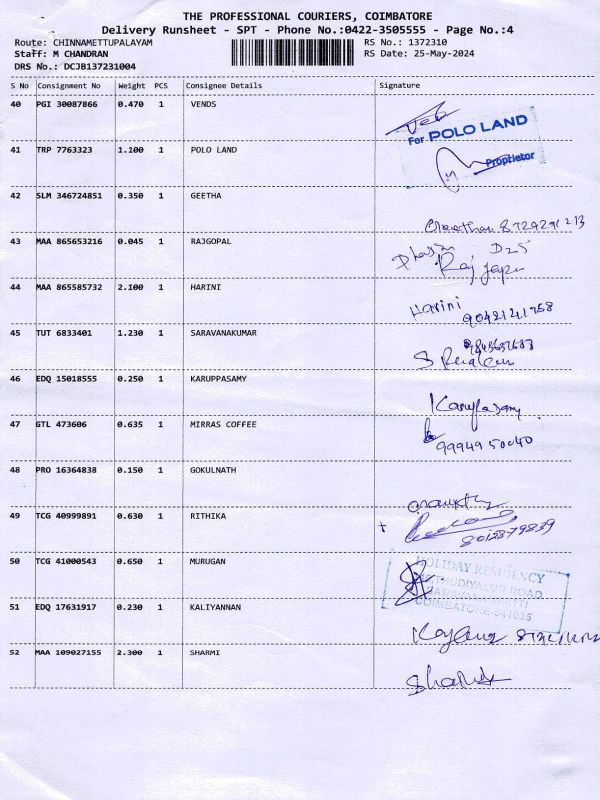 THE PROFESSIONAL COURIERS, COIMBATORE
Delivery Runsheet - SPT - Phone No.:0422-3505555 - Page No.:4
Route: CHINNAMETTUPALAYAM RS No.: 1372310
Staff: M CHANDRAN RS Date: 25-May-2024
DRS No.: DCJB137231004
S No Consignment No Weight PCS Consignee Details Signature
40 PGI 30087866 0.470 1 VENDS
For POLO LAND
41 TRP 7763323 1.100 1 POLO LAND
Proprietor
42 SLM 346724851 0.350 1 GEETHA
43 MAA 865653216 0.045 1 RAJGOPAL
44 MAA 865585732 2.100 1 HARINI
Harini
45 TUT 6833401 1.230 1 SARAVANAKUMAR
46 EDQ 15018555 0.250 1 KARUPPASAMY
47 GTL 473606 0.635 1 MIRRAS COFFEE
9994950040
48 PRO 16364838 0.150 1 GOKULNATH
49 TCG 40999891 0.630 1 RITHIKA
8012879839
50 TCG 41000543 0.650 1 MURUGAN
HOLIDAY RESIDENCY
COIMBATORE-641035
51 EDQ 17631917 0.230 1 KALIYANNAN
52 MAA 109027155 2.300 1 SHARMI